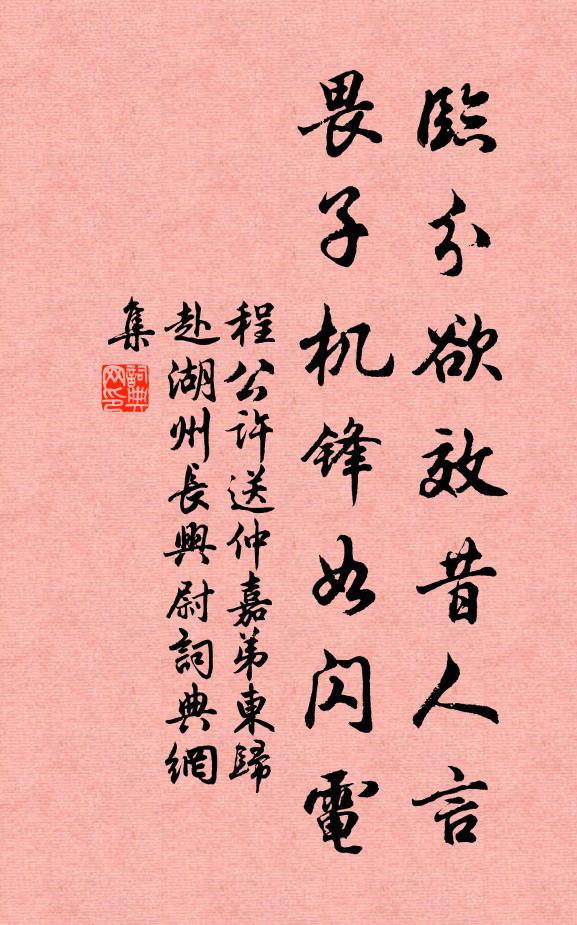 臨分欲效昔人言
畏子机锋如闪電
程公许送仲嘉弟東歸
赴湖州長興尉詞典網
集
詞典
网印